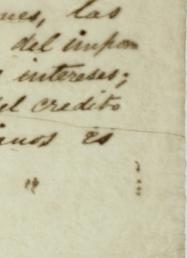 ues, las
del impor
s intereses;
del credito
anos es